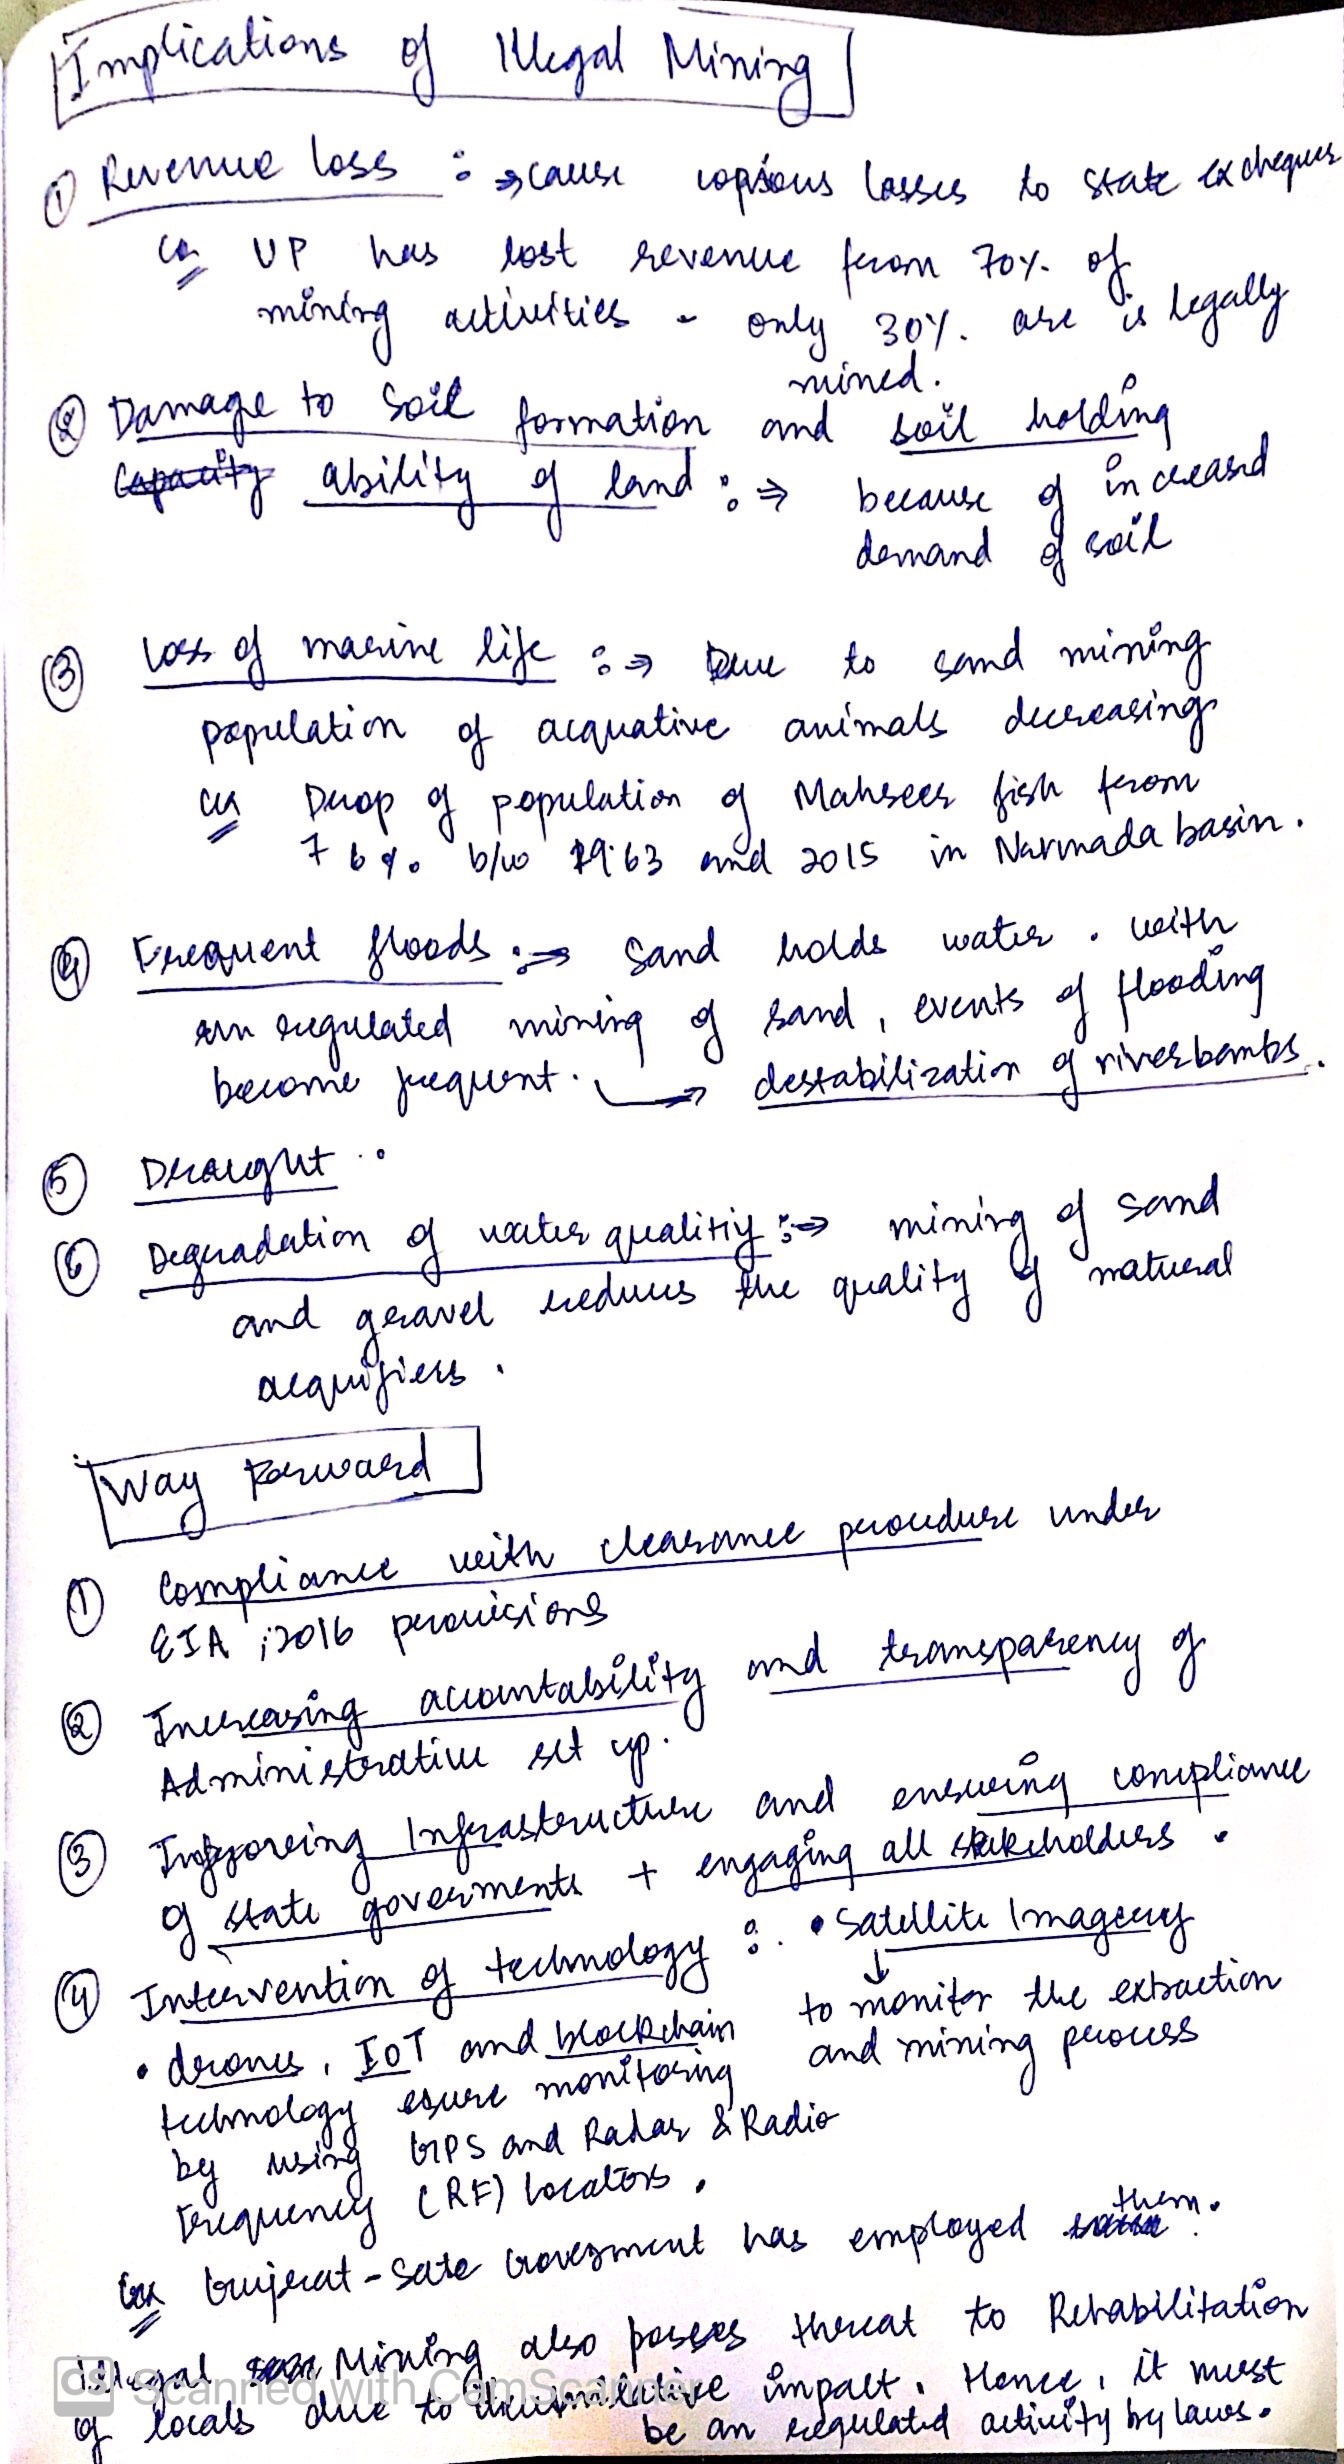 Implications of Illegal Mining
① Revenue loss :⇒ cause copious losses to state exchequer
eg UP has lost revenue from 70% of
mining activities - only 30% are is legally
mined.
② Damage to soil formation and soil holding
capacity ability of land :⇒ because of increased
demand of soil
③ Loss of marine life :⇒ Due to sand mining
population of acquative animals decreasing
eg Drop of population of Mahseer fish from
76% b/w 1963 and 2015 in Narmada basin.
④ Frequent floods :⇒ Sand holds water. with
un regulated mining of sand, events of flooding
become frequent. → destabilization of riverbanks.
⑤ Draught :
⑥ Degradation of water qualitiy :⇒ mining of sand
and gravel reduces the quality of natural
acquifiers.
Way Forward
① Compliance with clearance procedure under
EIA, 2016 provisions
② Increasing accountability and transparency of
Administrative set up.
③ Improving Infrastructure and ensuring compliance
of state goverments + engaging all stakeholders.
④ Intervention of technology :. • Satellite Imagery
↓
to monitor the extraction
and mining process
• drones, IoT and blockchain
technology esure monitoring
by using GPS and Radar & Radio
Frequency (RF) locators.
Ex Gujrat - Sate Goverment has employed them.
illegal Mining also posses threat to Rehabilitation
of locals due to cumulative impact. Hence, it must
be an regulated activity by laws.
CS Scanned with CamScanner